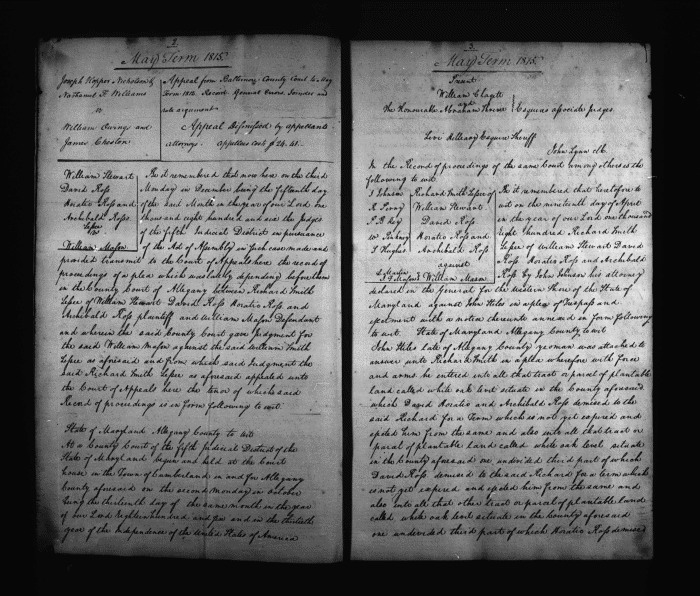 2
May Term 1815.
Joseph Hopper Nicholson &
Nathaniel F. Williams
vs
William Owings and
James Cheston
Appeal from Baltimore County Court to May
Term 1812. Record. General Errors. Joinder and
rule argument.
Appeal Dismissed by appellants
attorneys. Appellees Cost $ 24.41.
William Stewart
David Ross
Horatio Ross and
Archibald Ross
Lessee
vs
William Mason
Be it remembered that now here on the third
Monday in December being the fifteenth day
of the said Month in the year of our Lord one
thousand eight hundred and six the Judges
of the fifth Judicial District in pursuance
of the Act of Assembly in such case made and
provided transmit to the Court of Appeals here the record of
proceedings of a plea which was lately depending before them
in the County Court of Allegany between Richard Smith
Lessee of William Stewart David Ross Horatio Ross and
Archibald Ross plaintiff and William Mason Defendant
and wherein the said County Court gave Judgment for
the said William Mason against the said Smith
Lessee as aforesaid and from which said Judgment the
said Richard Smith Lessee as aforesaid appealed unto
the Court of Appeals here the tenor of which said
Record of proceedings is in form following to wit.
State of Maryland Allegany County to wit
At a County Court of the fifth Judicial District of the
State of Maryland begun and held at the Court
house in the Town of Cumberland in and for Allegany
County aforesaid on the second Monday in October
being the thirteenth day of the same month in the year
of our Lord Eighteen hundred and six and in the thirtieth
year of the Independence of the United States of America
3
May Term 1815.
Present
William Clagett
and
The Honourable Abraham Shriver
Esquires associate Judges.
Levi Hilleary Esquire Sheriff
John Lynn Clk.
In the Record of proceedings of the same Court among others is the
following to wit
J Johnson
Richard Smith Lessee of
William Stewart
David Ross
Horatio Ross and
Archibald Ross
against
William Mason
Be it remembered that heretofore to
wit on the nineteenth day of April
in the year of our Lord one thousand
eight hundred Richard Smith
Lessee of William Stewart David
Ross Horatio Ross and Archibald
Ross by John Johnson his attorney
declared in the General for the Western Shore of the State of
Maryland against John Hiles in a plea of Trespass and
ejectment with a notice thereunto annexed in form following
to wit. State of Maryland Allegany County to wit
John Hiles late of Allegany County yeoman was attached to
answer unto Richard Smith in a plea wherefore with force
and arms he entered into all that tract or parcel of plantable
land called white oak level situate in the County aforesaid
which David Horatio and Archibald Ross demised to the
said Richard for a Term which is not yet expired and
ejected him from the same and also into all that tract or
parcel of plantable Land called white oak level situate
in the County aforesaid one undivided third part of which
David Ross demised to the said Richard for a term which
is not yet expired and ejected him from the same and
also into all that other tract or parcel of plantable Land
called white oak level situate in the County aforesaid
one undivided third part of which Horatio Ross demised